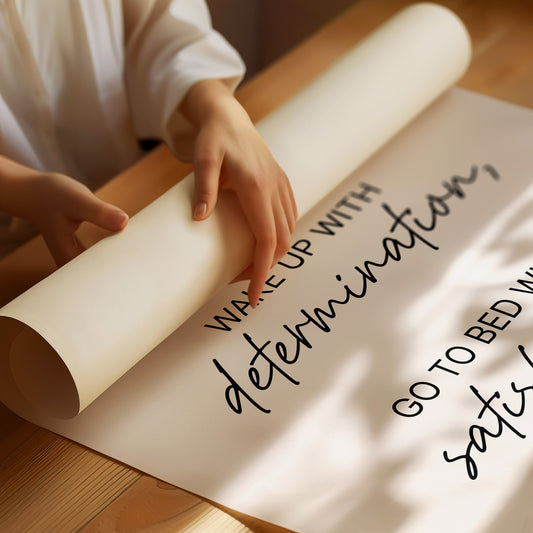 WAKE UP WITH
determination,
GO TO BED